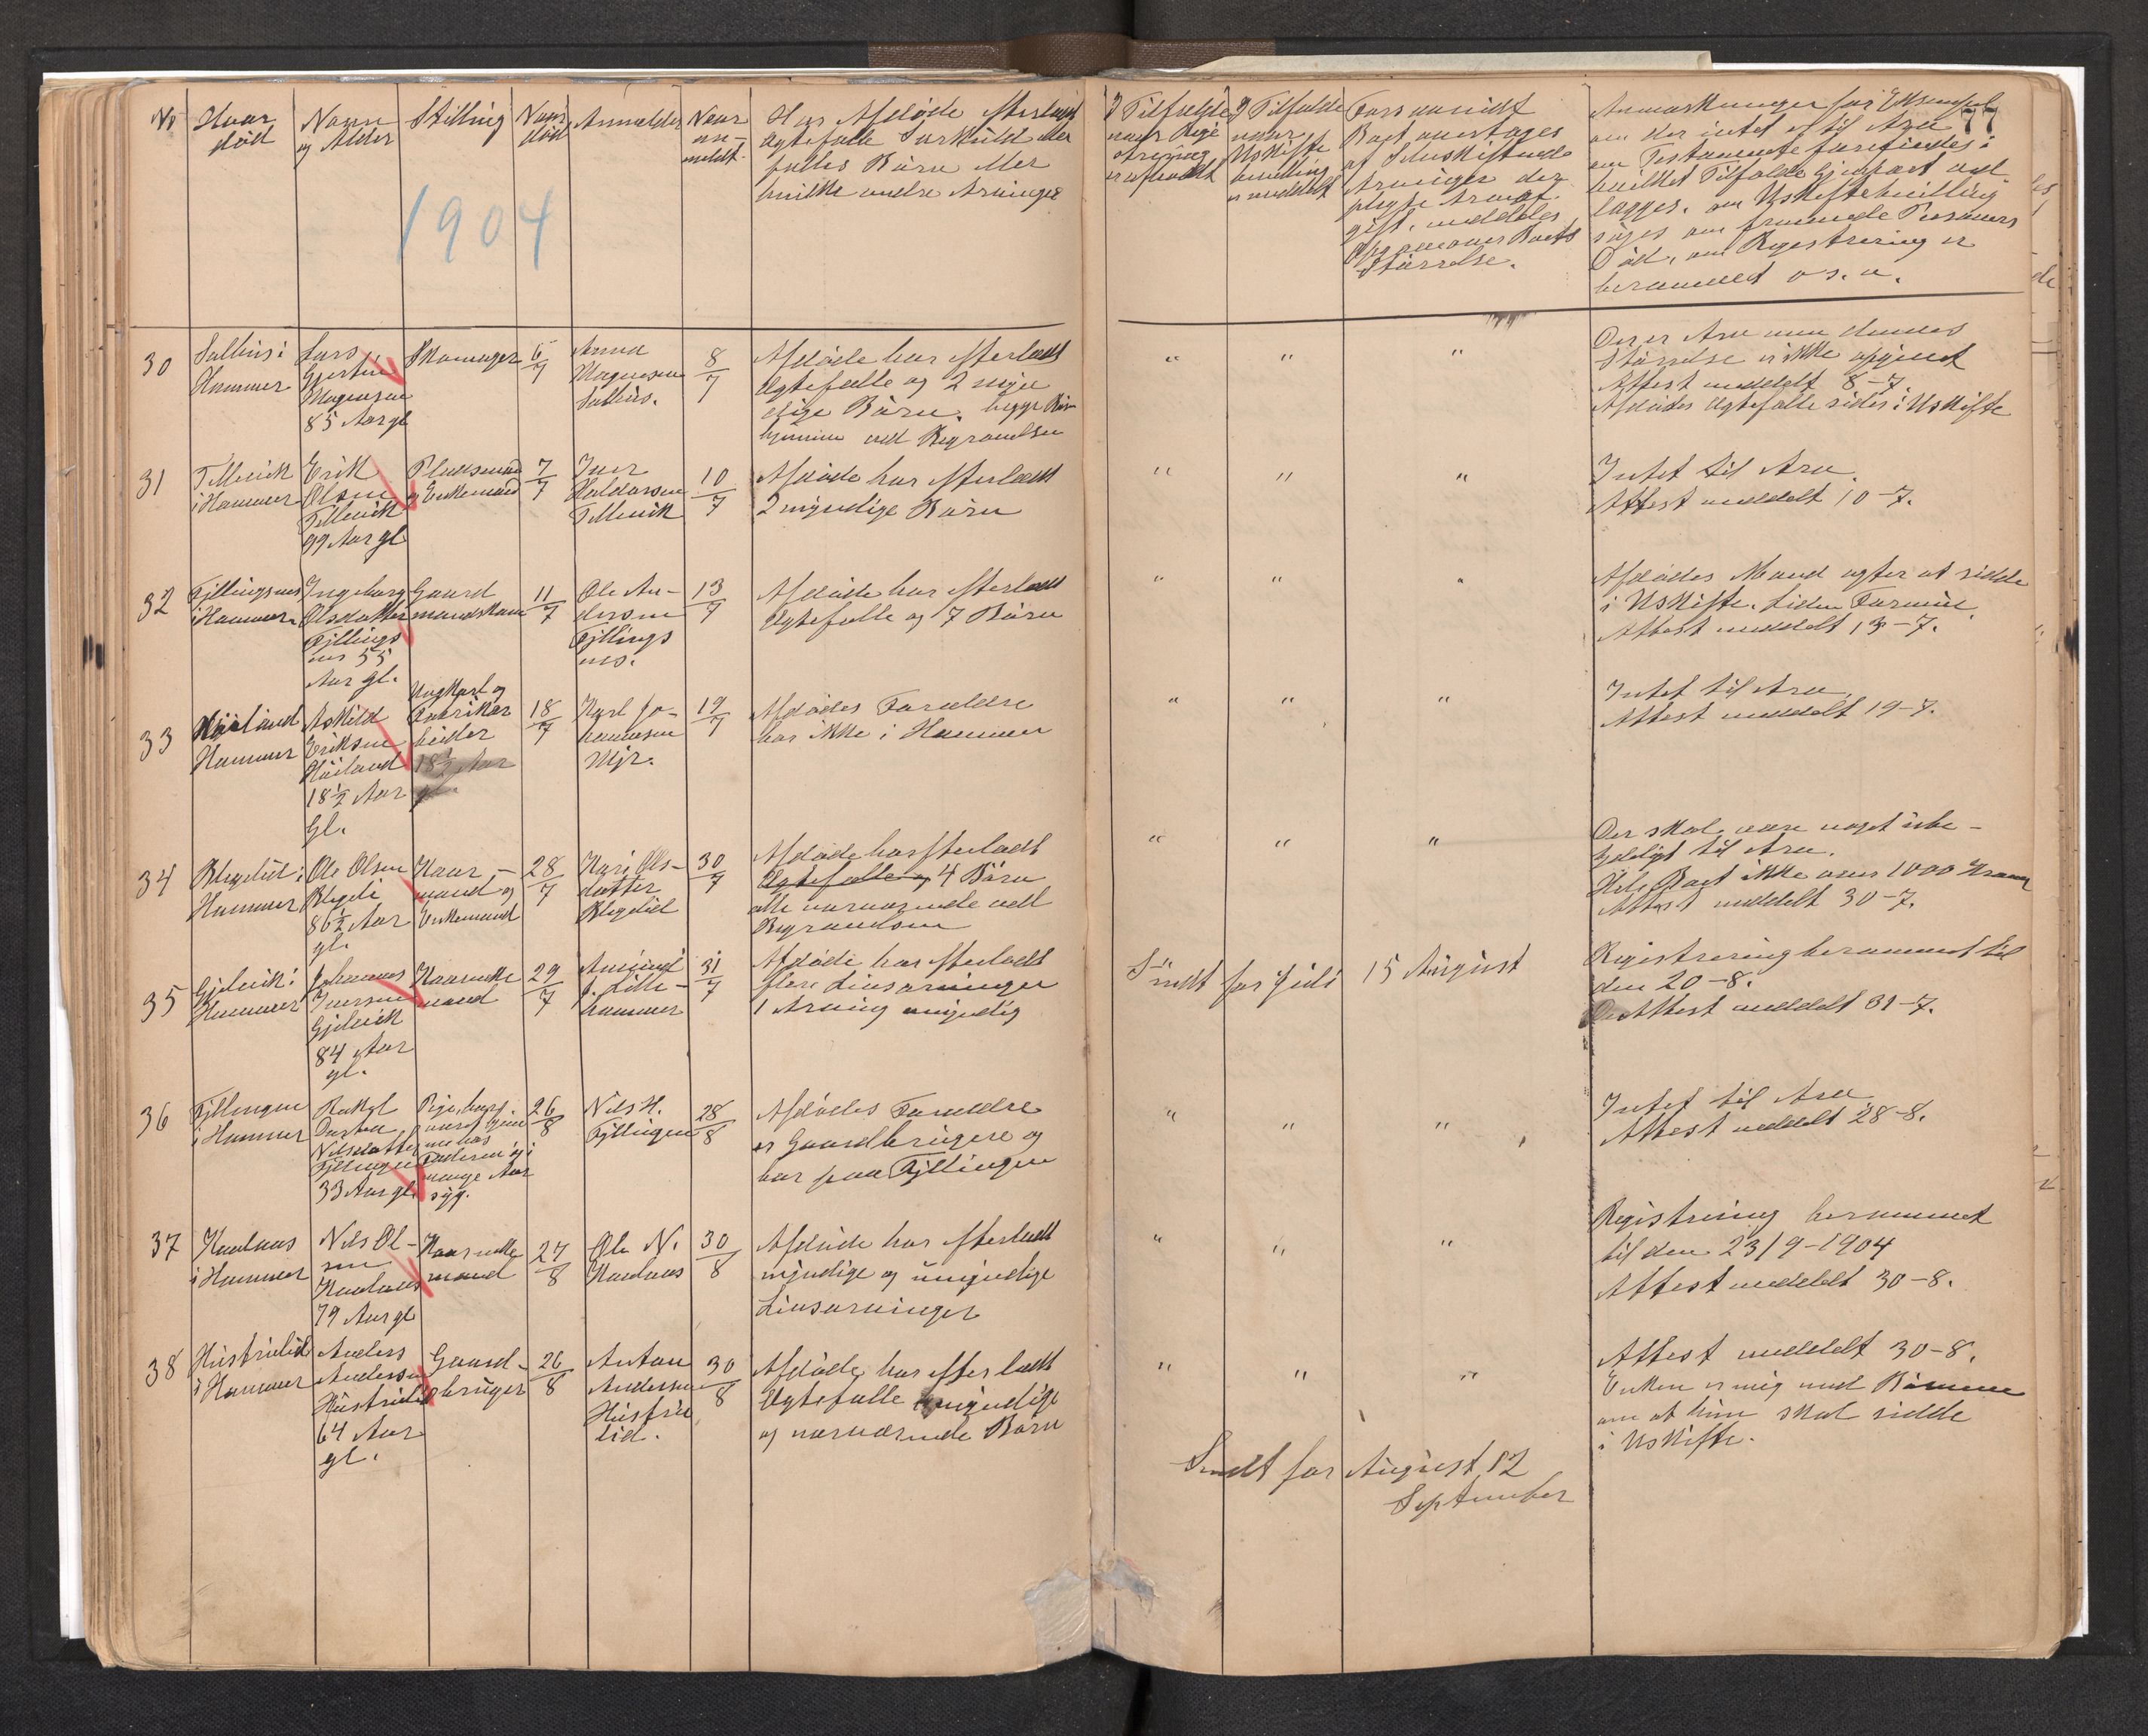 No
Hvor
död
Navn
og Alder
Stilling
Naar
död
Anmelder
Naar
an-
meldt
Har Afdöde efterladt
Ægtefælle Særkuld eller
fælles Börn eller
hvilke andre Arvinger
I Tilfælde
naar Regi
strering
er afholdt
I Tilfælde
naar
Uskifte
bevilling
er meddelt
Forsaavidt
Boet overtages
af Selvskiftende
Arvinger der
pligte Arveaf
gift, meddeles
Opgave over Boets
Störrelse.
Anmærkninger for Eksempel
om der intet er til Arv
om Testamente forefindes i
hvilket Tilfælde Gjenpart ved
lægges, om Uskiftebevilling
söges om fremmede Personers
Död, om Registrering er
berammet o.s.v.
77
1904
30
Salhus i
Hammer
Lars
Gjertin
Magnesen
85 Aar gl
Skomager
6/7
Anna
Magnesen
Salhus.
8/7
Afdöde har efterladt
Ægtefælle og 2 myn
dige Börn. begge Börn
hjemme ved Begravelsen
"
"
"
Der er Arv men dennes
Störrelse er ikke opgivet
Attest meddelt 8-7
Afdödes Ægtefælle sider i Uskifte
31
Tellevik
i Hammer
Erik
Olsen
Tellevik
99 Aar gl
Pladsmand
og Enkemand
7/7
Iver
Haldorsen
Tellevik
10/7
Afdöde har efterladt
2 myndige Börn
"
"
"
Intet til Arv.
Attest meddelt 10-7.
32
Fyllingsnes
i Hammer
Ingeborg
Olsdatter
Fyllings
nes 55
Aar gl.
Gaard
mandskone
11/7
Ole An-
dersen
Fyllings
nes.
13/7
Afdöde har efterladt
Ægtefælle og 7 Börn
"
"
"
Afdödes Mand agter at sidde
i Uskifte. Liden Formue.
Attest meddelt 13-7.
33
Höiland
Hammer
Askild
Eriksen
Höiland
18½ Aar
Gl.
Ungkarl og
Fabrikar
beider
18½ Aar
gl.
18/7
Karl Jo-
hannesen
Mjr.
19/7
Afdödes Forældre
bor ikke i Hammer
"
"
"
Intet til Arv.
Attest meddelt 19-7.
34
Blegelid i
Hammer
Ole Olsen
Blegeli
86½ Aar
gl.
Kaar-
mand og
Enkemand
28/7
Kari Ols-
datter
Blegelid
30/7
Afdöde har efterladt
Ægtefælle og 4 Börn
alle nærværende ved
Begravelsen
"
"
"
Der skal være noget ube-
tydeligt til Arv.
Hele Boet ikke over 1000 Kroner
Attest meddelt 30-7.
35
Gjelvik i
Hammer
Johannes
Iversen
Gjelvik
84 Aar
gl.
Kaarenke
mand
29/7
Amund
J. Lille-
hammer
31/7
Afdöde har efterladt
flere Livsarvinger
1 Arving umyndig
Sendt for Juli 15 August
Registrering berammet til
den 20-8.
Attest meddelt 31-7.
36
Fyllingen
i Hammer
Rakel
Dortea
Nilsdatter
Fyllingen
33 Aar gl.
Pige, har
været hjem
me hos
Faderen og i
mange Aar
syg.
26/8
Nils H.
Fyllingen
28/8
Afdödes Forældre
er Gaardbrugere og
bor paa Fyllingen
"
"
"
Intet til Arv
Attest meddelt 28-8.
37
Haukaas
i Hammer
Nils Ol-
sen
Haukaas
79 Aar gl
Kaarenke
mand
27/8
Ole N.
Haukaas
30/8
Afdöde har efterladt
myndige og umyndige
Livsarvinger
"
"
"
Registrering berammet
til den 23/9-1904
Attest meddelt 30-8.
38
Hustrulid
i Hammer
Anders
Andersen
Hustrulid
64 Aar
gl.
Gaard-
bruger
26/8
Anton
Andersen
Hustru
lid.
30/8
Afdöde har efterladt
Ægtefælle myndige
og nærværende Börn
"
"
"
Attest meddelt 30-8.
Enken er enig med Börnene
om at hun skal sidde
i Uskifte.
Sendt for August 12
September